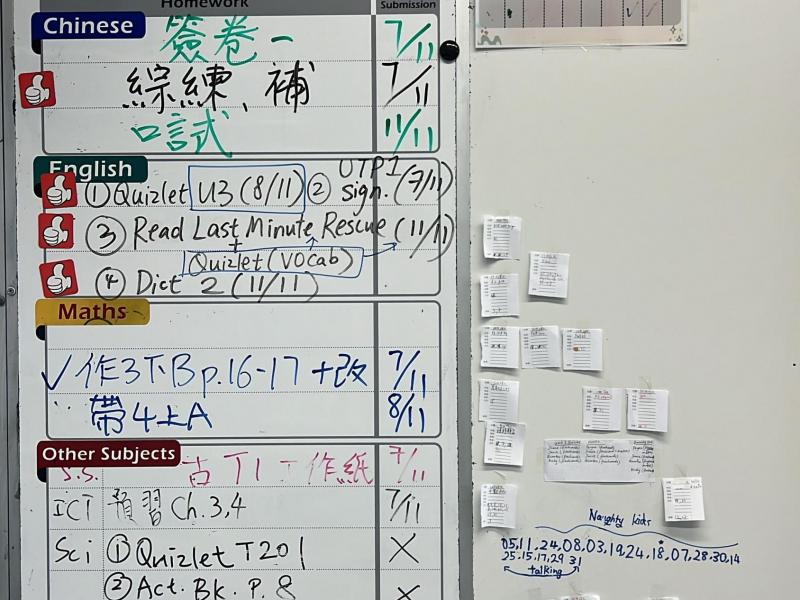 Homework
Submission
Chinese
簽卷一 7/11
綜練、補 7/11
口試 11/11
English
① Quizlet U3 (8/11) ② UTP1 sign. (7/11)
③ Read Last Minute Rescue (11/11)
+ Quizlet (Vocab)
④ Dict 2 (11/11)
Maths
✓ 作3下B p.16-17 + 改 7/11
帶4上A 8/11
Other Subjects
S.S. 古 T1 工作紙 7/11
ICT 預習 Ch.3,4 7/11
Sci ① Quizlet T201 X
② Act. Bk. P. 8 X
Naughty kids
05,11,24,08,03,19,24,18,07,28,30,14
25,15,17,29 31
talking